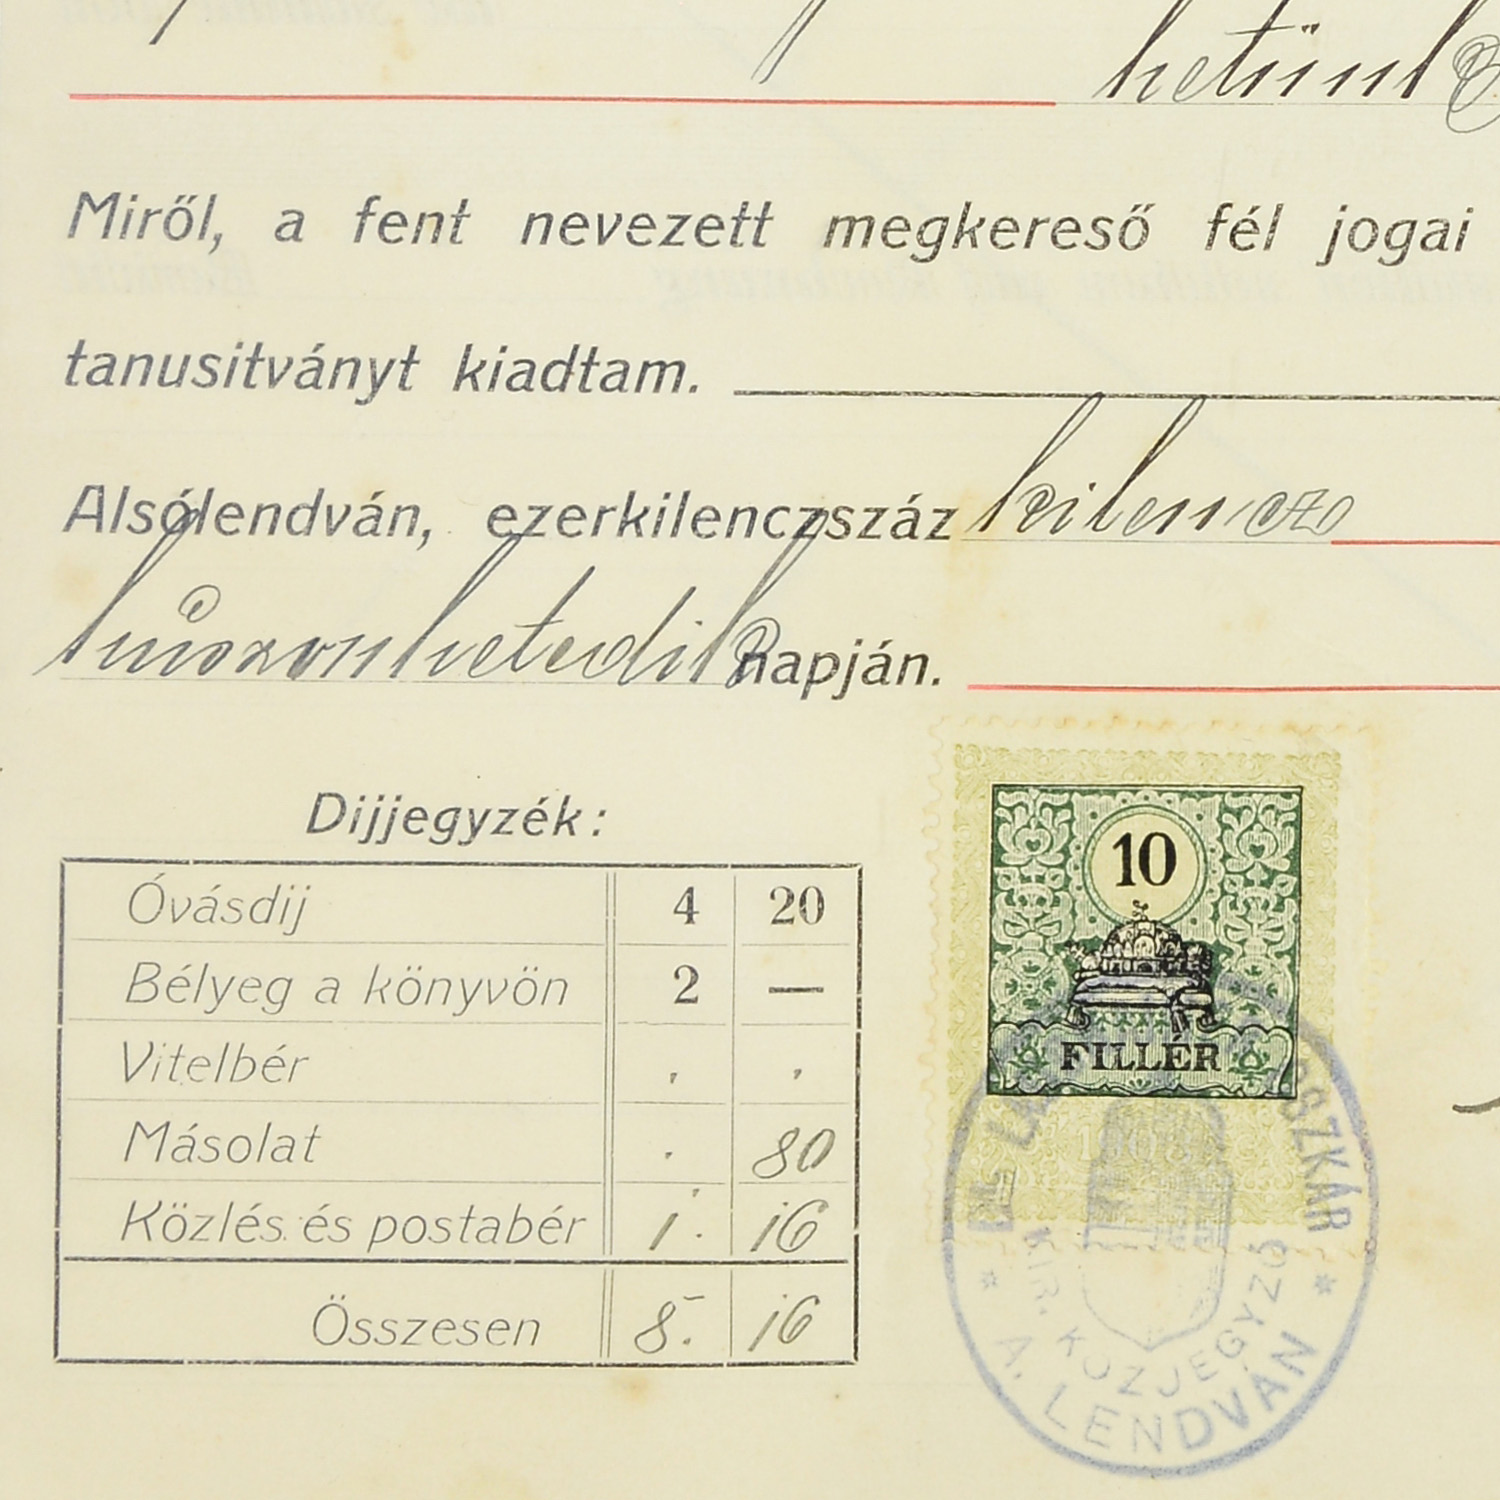 hetünk
Miről, a fent nevezett megkereső fél jogai
tanusitványt kiadtam.
Alsólendván, ezerkilenczszáz kilencz
húszonhetedik napján.
Dijjegyzék:
Óvásdij 4 20
Bélyeg a könyvön 2 —
Vitelbér . .
Másolat . 80
Közlés és postabér 1. 16
Összesen 8. 16
10
FILLÉR
1903
SZKÁR
KIR. KÖZJEGYZŐ
* A. LENDVÁN *